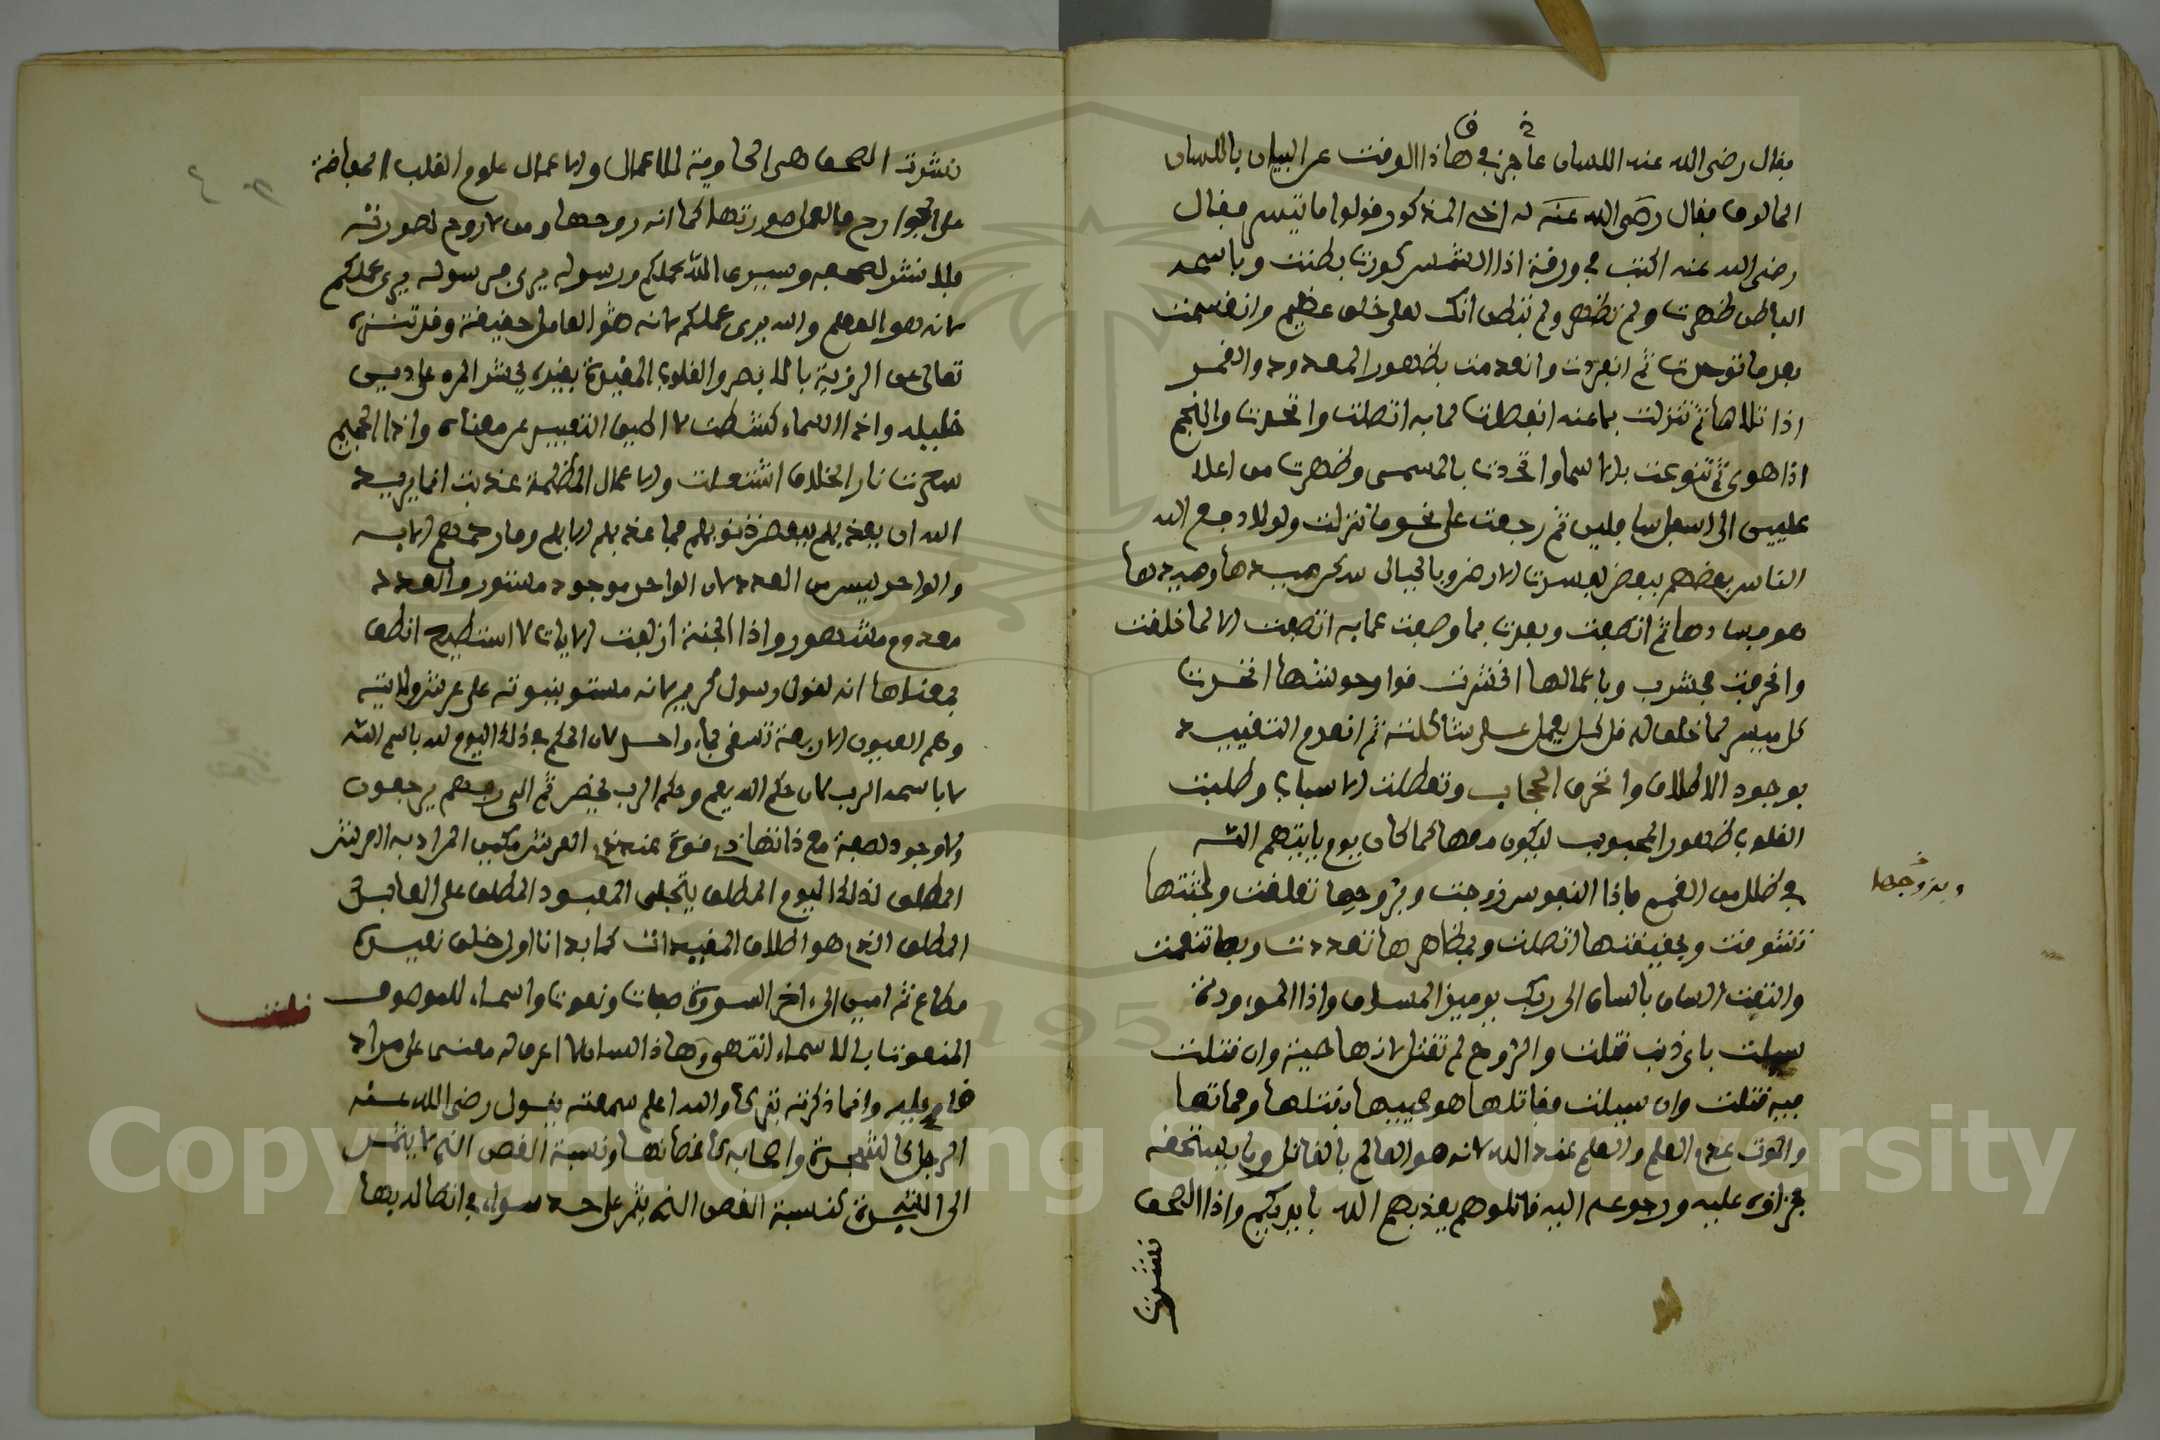 فقال رضى الله عنه اللسان عاجز في هاذا الوقت عن البيان باللسان
المالوف فقال رضى الله عنه له اخى المذكور قولوا ما تيسر فقال
رضى الله عنه اكتب في ورقة اذا الشمس كورت بطنت وباسمه
الباطن ظهرت ولم تظهر ولم تبطن انك لعلى خلق عظيم وانقسمت
بعد ما توحدت ثم انفردت وانعدمت بظهور المعدود والقمر
اذا تلاها ثم تنزلت بما عنه انفصلت لما به اتصلت واتحدت والنجم
اذا هوى ثم تنوعت بالاسما واتحدت بالمسمى وظهرت من اعلا
عليين الى اسفل سافلين ثم رجعت على نحو ما تنزلت ولولا دفع الله
الناس بعضهم ببعض لفسدت الارض وبالجبال سكن ميدها وميدها
هو فسادها ثم اتصفت وبعدت بما وصفت عما به اتصفت الا لما خلقت
وانحرفت فحشرت وباعمالها انحشرت فوا وحوشها انحشرت
كل ميسر لما خلق له قل كل يعمل على شاكلته ثم انعدم التقييد
بوجود الاطلاق وانخرق الحجاب وتعطلت الاسباب وطلبت
القلوب ظهور المحبوب ليكون معها كما كان يوم ياتيهم الله
في ظلل من الغمام فاذا النفوس زوجت وبزوجها تعلقت ولجنتها
وبزوجها
تشوقت وبحقيقتها اتصلت وبمظاهرها تعددت وبها تنعمت
والتفت الساق بالساق الى ربك يوميذ المساق واذا الموءودة
سيلت باى ذنب قتلت والروح لم تقتل لانها حية وان قتلت
فيه قتلت وان سيلت فقاتلها هو محييها بقتلها ومماتها
والموت عدم العلم والعلم عند الله لانه هو العالم بالقاتل وما يستحقه
فجزاؤه عليه ورجوعه اليه قاتلوهم يعذبهم الله بايديكم واذا الصحف
نشرت
نشرت الصحف هى الحاوية للاعمال والاعمال علوم القلب الفايضة
على الجوارح فالعمل صورتها كما انه روحها ومن لا روح لصورته
فلا نشر لصحفه وسيرى الله عملكم ورسوله يرى من سوله يرى عملكم
لانه هو العلم والله يرى عملكم لانه هو العامل حقيقة وقد تنزه
تعالى عن الرؤية بالابصر والقلوب المقيدة بغيره يحشر المرء على دين
خليله واذا السماء كشطت لا اطيق التعبير عن معناه واذا الجحيم
سعرت نار الخلاف اشتعلت والاعمال المظلمة عذبت انما يريد
الله ان يعذبهم ببعض ذنوبهم فما عذبهم الا بهم وما رحمهم الا به
والواحد ليس من العدد لان الواحد موجود مستور والعدد
معدوم مشهور واذا الجنة ازلفت الايات لا استطيع انطق
بمعناها انه لقول رسول كريم لانه مستو بنبوته على عرش ولايته
وهم العيون الاربعة تسقى بماء واحد لان الحكم في ذلك اليوم لله باسم الله
لا باسمه الرب لان حكم الله يعم وحكم الرب يخص ثم الى ربهم يرجعون
ولا وجود لصفة مع ذاتها ذى قوة عند ذى العرش مكين المراد به العرش
المطلق لذلك اليوم المطلق يتجلى المعبود المطلق على العابد
المطلق الذى هو اطلاق المقيدات كما بدانا اول خلق نعيده
مطاع ثم امين الى اخر السورة صفات ونعوت واسماء للموصوف
المنعوت بالاسماء انتهى وهاذا اللسان لا اعرف له معنى على مراد
قلت
قايله وانما ذكرته تبركا والله اعلم سمعته يقول رضى الله عنه
الرجل كالشجرة واصحابه كاغصانها ونسبة الغصن الذى لا يثمر
الى الشجرة كنسبة الغصن الذى يثمر على حد سواء في اتصاله بها
Copyright © King Saud University
1957